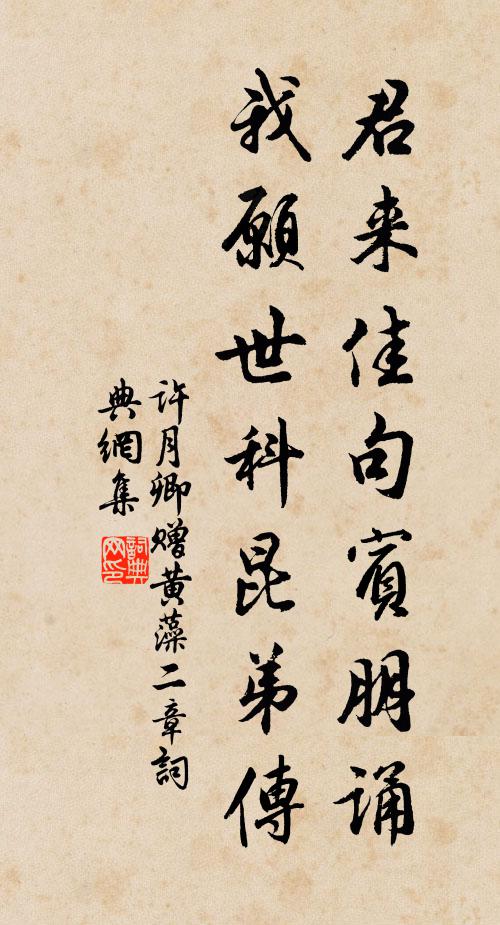 君来佳句賓朋誦
我願世科昆弟傳
许月卿赠黄藻二章詞
典網集
詞典網印